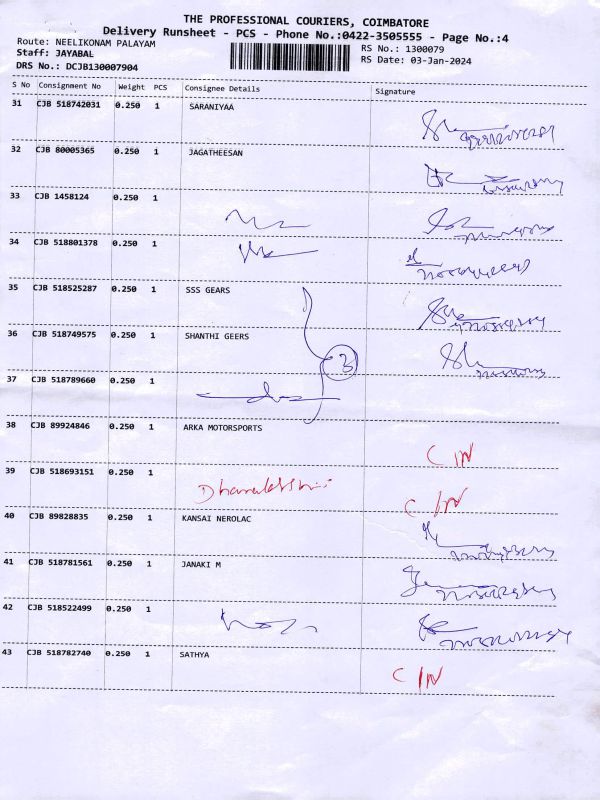 THE PROFESSIONAL COURIERS, COIMBATORE
Delivery Runsheet - PCS - Phone No.:0422-3505555 - Page No.:4
Route: NEELIKONAM PALAYAM
RS No.: 1300079
Staff: JAYABAL
RS Date: 03-Jan-2024
DRS No.: DCJB130007904
S No Consignment No Weight PCS Consignee Details Signature
31 CJB 518742031 0.250 1 SARANIYAA
32 CJB 80005365 0.250 1 JAGATHEESAN
33 CJB 1458124 0.250 1
34 CJB 518801378 0.250 1
35 CJB 518525287 0.250 1 SSS GEARS
36 CJB 518749575 0.250 1 SHANTHI GEERS
3
37 CJB 518789660 0.250 1
38 CJB 89924846 0.250 1 ARKA MOTORSPORTS
C/N
39 CJB 518693151 0.250 1
C/N
40 CJB 89828835 0.250 1 KANSAI NEROLAC
41 CJB 518781561 0.250 1 JANAKI M
42 CJB 518522499 0.250 1
43 CJB 518782740 0.250 1 SATHYA
C/N